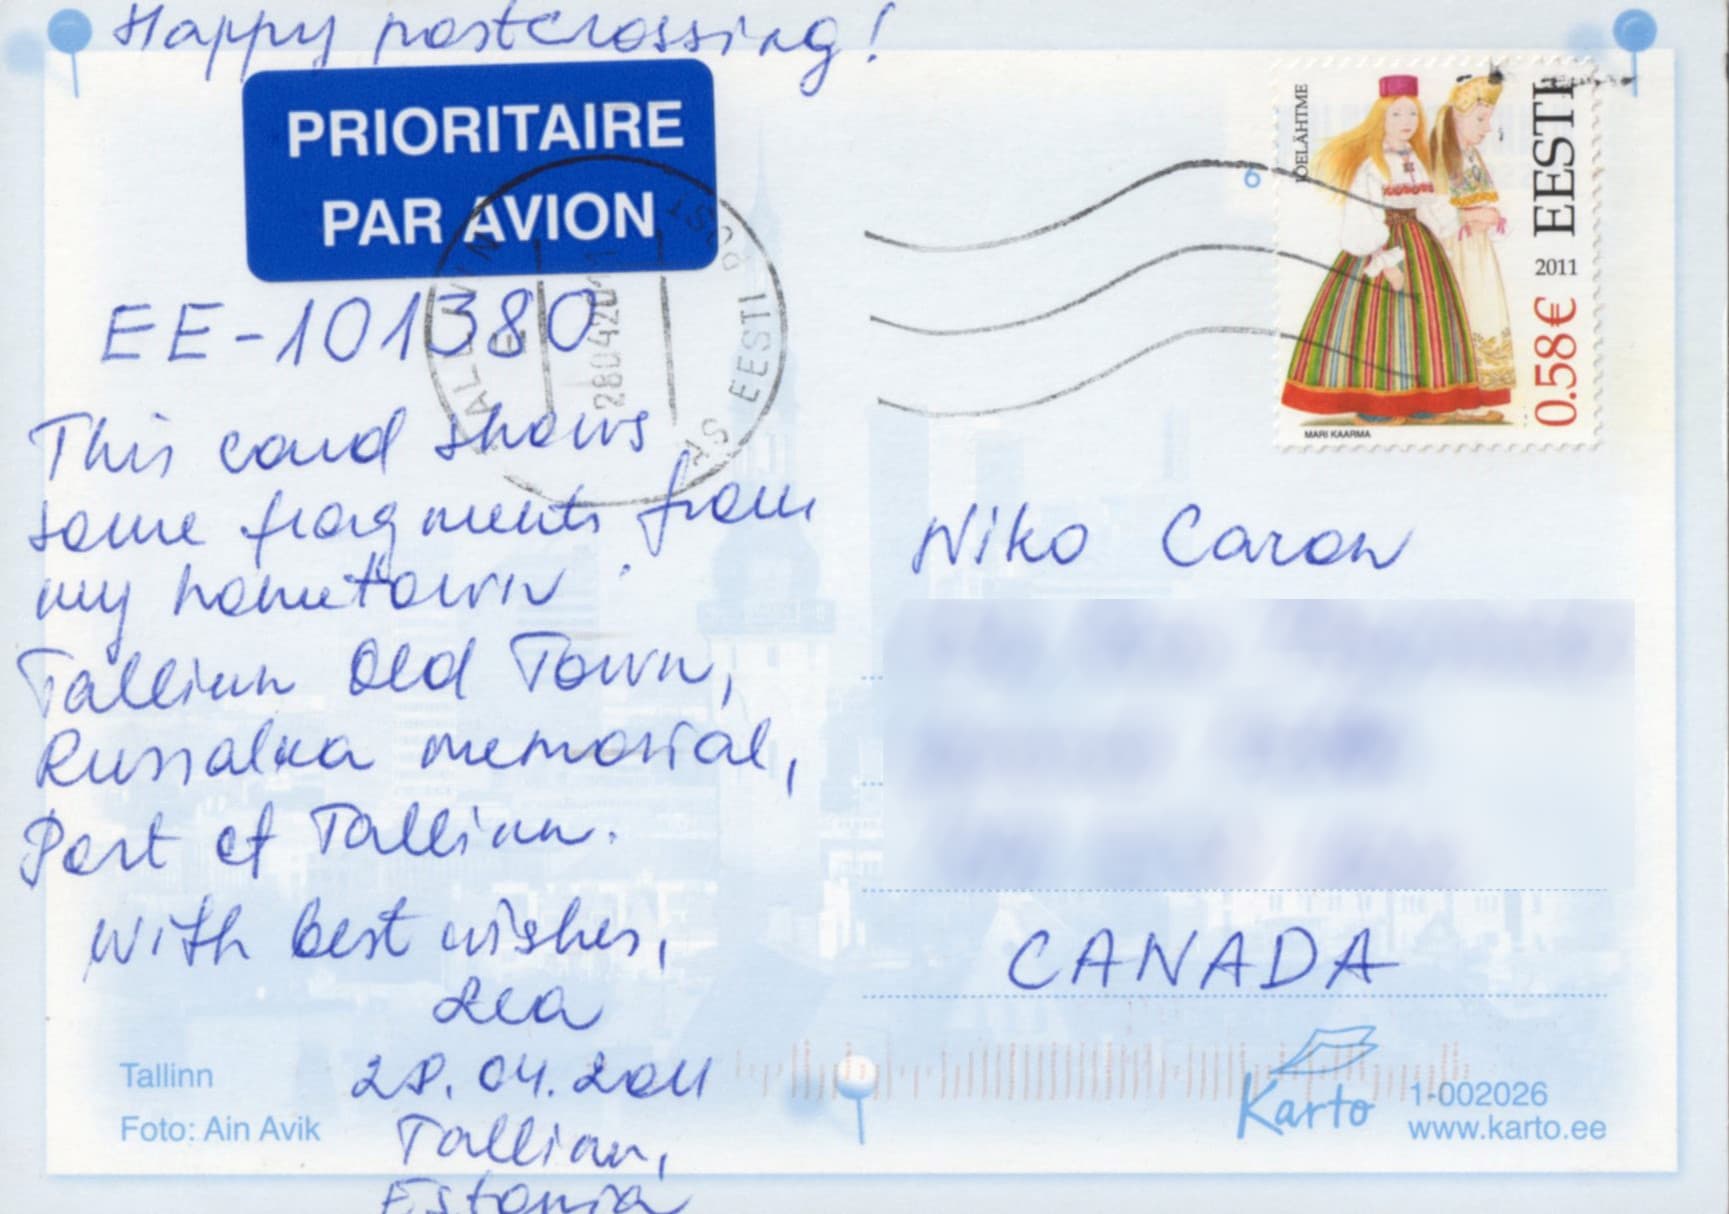 Happy postcrossing!
PRIORITAIRE
PAR AVION
EE-101380
This card shows
some fragments from
my hometown:
Tallinn Old Town,
Russalka memorial,
Port of Tallinn.
With best wishes,
Lea
28.04.2011
Tallinn,
Estonia
Tallinn
Foto: Ain Avik
TALLINN
28042011
EESTI
JÕELÄHTME
EESTI
2011
0.58€
MARI KAARMA
Niko Caron
CANADA
Karto
1-002026
www.karto.ee